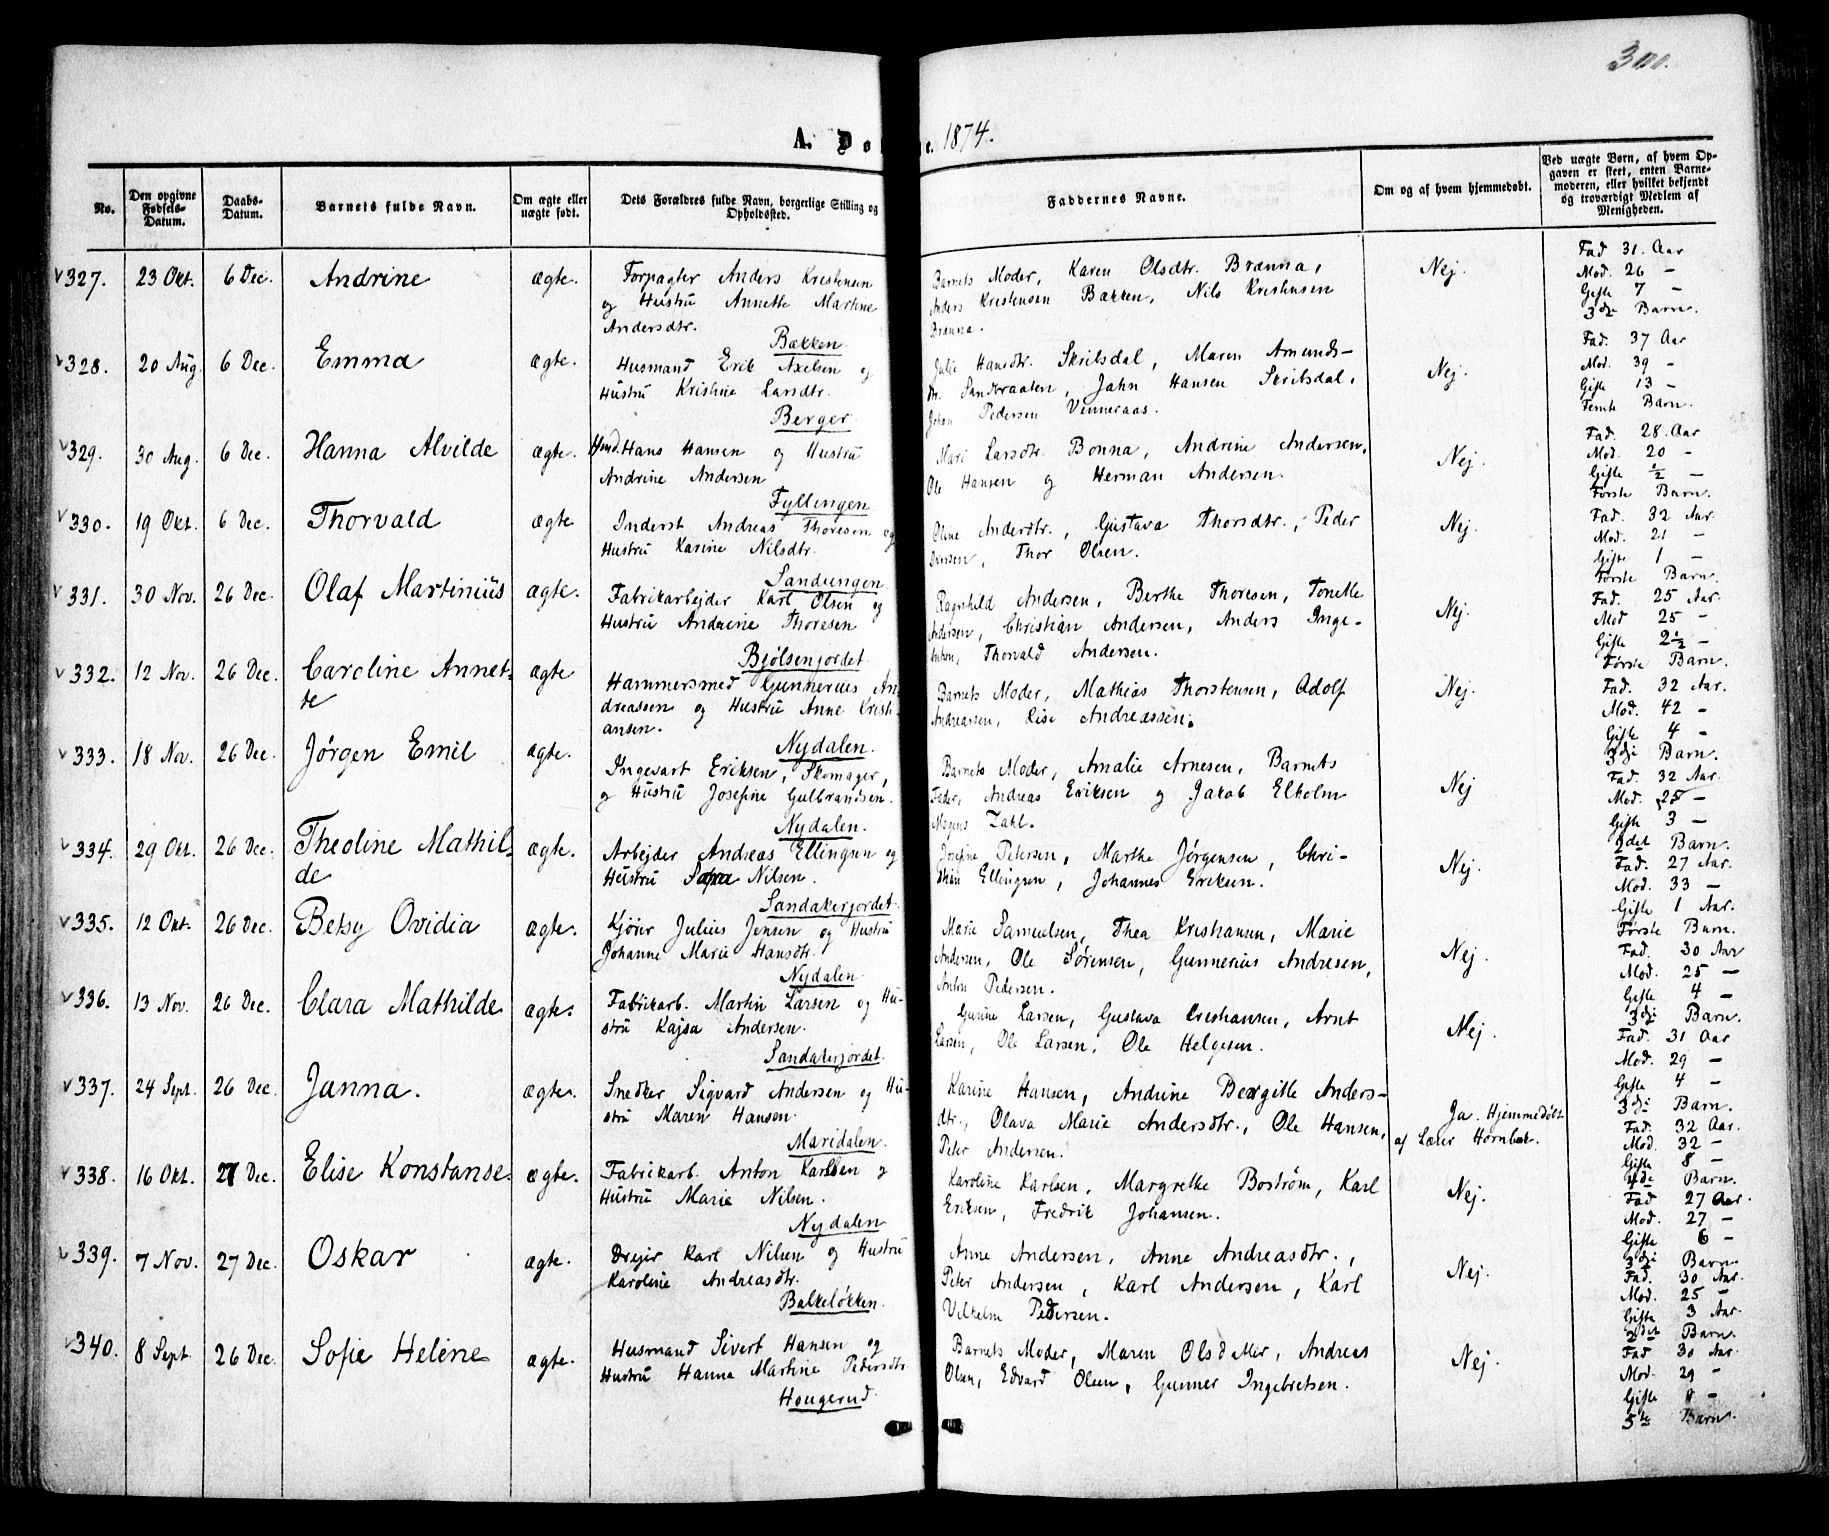 300.
A. Dø e. 1874.
No.
Den opgivne Fødsels-Datum.
Daabs-Datum.
Barnets fulde Navn.
Om ægte eller uægte født.
Dets Forældres fulde Navn, borgerlige Stilling og Opholdssted.
Faddernes Navne.
Om og af hvem hjemmedøbt.
Ved uægte Børn, af hvem Opgaven er skeet, enten Barnemoderen, eller hvilket bekjendt og troværdigt Medlem af Menigheden.
327. 23 Okt. 6 Dec. Andrine ægte.
Forpagter Anders Kristensen
og Hustru Annette Martine
Andersdtr.
Bakken
Barnets Moder, Karen Olsdtr. Brænna,
Anders Kristensen Bakken, Nils Kristensen
Brænna.
Nej.
Fad 31. Aar
Mod. 26 -
Gifte 7 -
3die Barn.
328. 20 Aug. 6 Dec. Emma ægte.
Husmand Erik Axelsen og
Hustru Kristine Larsdtr.
Berger
Julie Hansdtr. Skribsdal, Maren Amunds-
dr. Sandbraaten, Jahn Hansen Skribsdal,
Johan Pedersen Venneraas.
Nej.
Fad. 37 Aar
Mod. 39 -
Gifte 13 -
Femte Barn.
329. 30 Aug. 6 Dec. Hanna Alvilde ægte.
Hmd. Hans Hansen og Hustru
Andrine Andersen
Fyllingen
Mari Larsdtr. Bonna, Andrine Andersen,
Ole Hansen og Herman Andersen.
Nej.
Fad. 28. Aar
Mod. 20 -
Gifte ½ -
Første Barn.
330. 19 Okt. 6 Dec. Thorvald ægte
Inderst Andreas Thoresen og
Hustru Karine Nilsdtr.
Sandungen
Oline Anderdtr., Gustava Thorsdtr., Peder
Iversen, Thor Olsen.
Nej.
Fad. 32 Aar.
Mod. 21 -
Gifte 1 -
Første Barn.
331. 30 Nov. 26 Dec. Olaf Martinius ægte.
Fabrikarbejder Karl Olsen og
Hustru Andrine Thoresen
Bjølsenjordet
Ragnhild Andersen, Berthe Thoresen, Tonette
Andersen, Christian Andersen, Anders Inge-
Anton, Thorvald Andersen.
Nej.
Fad. 25 Aar.
Mod 25 -
Gifte 2½ -
Første Barn.
332. 12 Nov. 26 Dec. Caroline Annet-
te
ægte
Hammersmed Gunnerius An-
dreassen og Hustru Anne Kristi-
ansen.
Nydalen.
Barnets Moder, Mathias Thorstensen, Adolf
Andreassen, Lise Andreassen.
Nej.
Fad. 32 Aar.
Mod. 42 -
Gifte 4 -
3die Barn.
333. 18 Nov. 26 Dec. Jørgen Emil ægte.
Ingevart Eriksen, Skomager,
og Hustru Josefine Gulbrandsen.
Nydalen.
Barnets Moder, Amalie Arnesen, Barnets
Fader, Andreas Eriksen og Jakob Elholm
Mogens Zahl.
Nej
Fad. 32 Aar.
Mod. 25 -
Gifte 3 -
2det Barn.
334. 29 Okt. 26 Dec. Theoline Mathil-
de
ægte.
Arbejder Andreas Ellingsen og
Hustru Sofia Nilsen.
Sandakerjordet
Josefine Petersen, Marthe Jørgensen, Chri-
stian Ellingsen, Johannes Eriksen.
Nej.
Fad. 27 Aar.
Mod. 33 -
Gifte 1 Aar.
Første Barn.
335. 12 Okt. 26 Dec. Betsy Ovidia ægte.
Kjører Julius Jensen og Hustru
Johanne Marie Hansdtr.
Nydalen
Marie Samuelsen, Thea Kristiansen, Marie
Andersen, Ole Sørensen, Gunnerius Andresen,
Anton Pedersen.
Nej.
Fad. 30 Aar
Mod. 25 -
Gifte 4 -
3die Barn.
336. 13 Nov. 26 Dec. Clara Mathilde ægte.
Fabrikarb. Martin Larsen og Hu-
stru Kajsa Andersen.
Sandakerjordet.
Gusine Larsen, Gustava Cristiansen, Arnt
Larsen, Ole Larsen, Ole Helgesen.
Nej.
Fad. 31 Aar
Mod. 29 -
Gifte 4 -
3die Barn.
337. 24 Sept. 26 Dec. Janna. ægte.
Snedker Sigvard Andersen og Hu-
stru Maren Hansen.
Maridalen.
Karine Hansen, Andrine Bergitte Anders-
dtr., Olava Marie Andersdtr., Ole Hansen,
Peter Andersen.
Ja. Hjemmedøbt
af Lærer Hornbæk.
Fad. 32 Aar.
Mod. 32 -
Gifte 8 -
4de Barn.
338. 16 Okt. 27 Dec. Elise Konstanse ægte.
Fabrikarb. Anton Karlsen og
Hustru Marie Nilsen.
Nydalen
Karoline Karlsen, Margrethe Bostrøm, Karl
Eriksen, Fredrik Johansen.
Nej.
Fad 27 Aar.
Mod. 27 -
Gifte 6 -
3die Barn
339. 7 Nov. 27 Dec. Oskar ægte.
Drejer Karl Nilsen og Hustru
Karoline Andreasdtr.
Balkeløkken.
Anne Andersen, Anne Andreasdtr.,
Peter Andersen, Karl Andersen, Karl
Vilhelm Pedersen.
Nej.
Fad. 30 Aar.
Mod. 25 -
Gifte 3 Aar.
2det Barn.
340. 8 Sept. 26 Dec. Sofie Helene ægte.
Husmand Sivert Hansen og
Hustru Hanna Martine Pedersdtr.
Hougerud.
Barnets Moder, Maren Olsdatter, Andreas
Olsen, Edvard Olsen, Gunner Ingebretsen.
Nej.
Fad 30 Aar.
Mod. 29 -
Gifte 8 -
5te Barn.